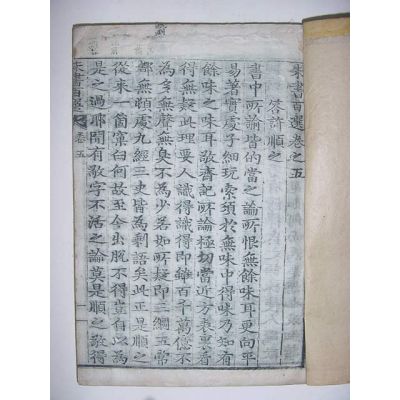 朱書百選卷之五
答許順之
書中所論皆的當之論所恨無餘味耳更向平
易著實處子細玩索須於無味中得味乃知有
餘味之味耳敬齋記所論極切當近方表裏看
得無疑此理要人識得識得即雖百千萬億不
為多無聲無臭不為少若如所疑即三綱五常
都無頓處九經三史皆為剩語矣此正是順之
從來一箇窠臼何故至今出脫不得豈自以為
是之過耶聞有敬字不活之論莫是順之敬得
朱書百選 卷五